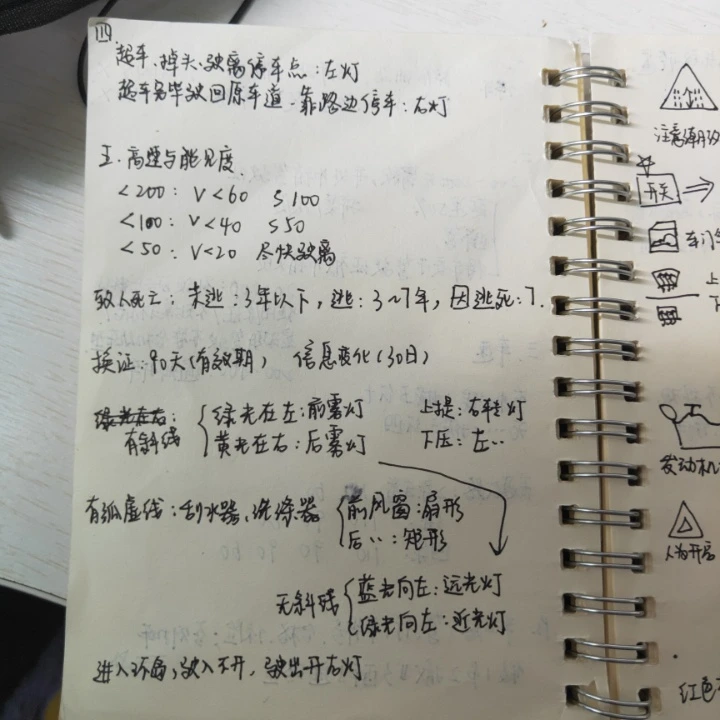 四.
超车、掉头、驶离停车点:左灯
超车完毕驶回原车道、靠路边停车:右灯
五.高速与能见度
<200: V<60 S100
<100: V<40 S50
<50: V<20 尽快驶离
致人死亡:未逃:3年以下,逃:3~7年,因逃死:7.
换证:90天(有效期) 信息变化(30日)
绿光在右:
有斜线 绿光在左:前雾灯 上提:右转灯
黄光在右:后雾灯 下压:左〃
有弧虚线:刮水器、洗涤器 前风窗:扇形
后〃:矩形
无斜线 蓝光向左:远光灯
绿光向左:近光灯
进入环岛,驶入不开,驶出开右灯
注意潮汐
开关
车门
上
下
发动机
人为开启
红色